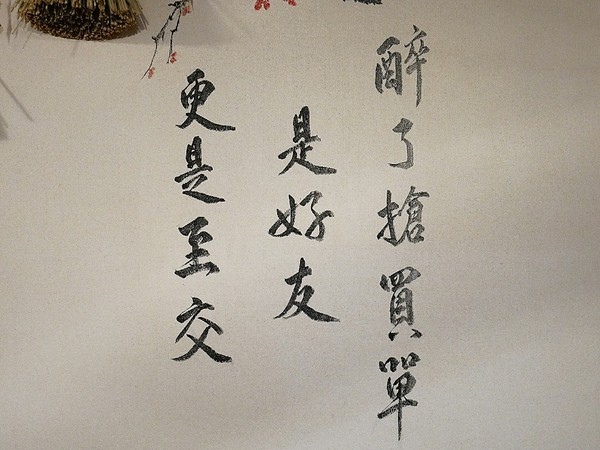 醉了搶買單
是好友
更是至交